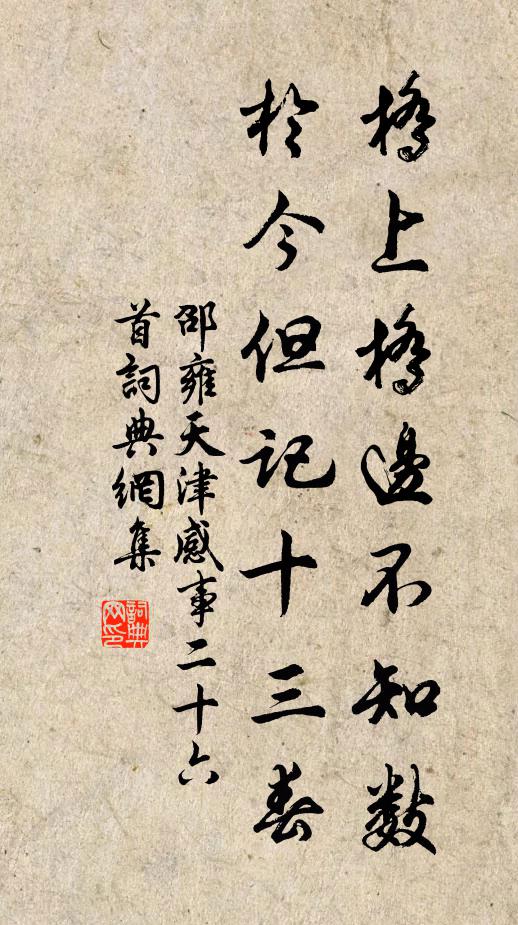 橋上橋邊不知數
於今但記十三春
邵雍天津感事二十六
首詞典網集
詞典
网印